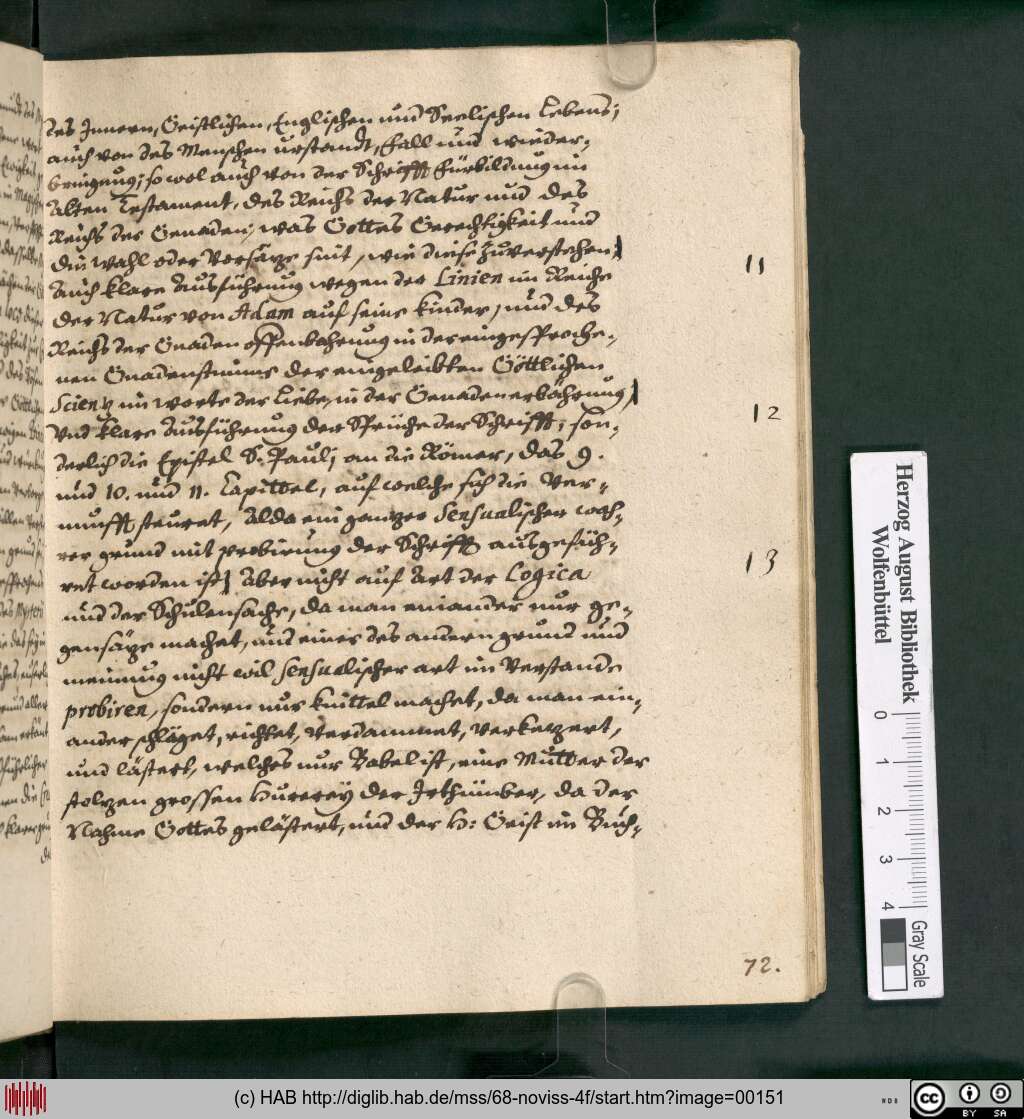 des Innern, Geistlichen, Englischen und Seelischen Lebens;
auch von des Menschen urstandt, fall und wieder,
bringung; so wol auch von der Schrifft fürbildung im
Alten Testament, des Reichs der Natur und des
Reichs der Genaden; was Gottes Gerechtigkeit und
die wahl oder Vorsätze sint, wie diese zuverstehen)
11
Auch klare Ausführung wegen der Linien im Reiche
der Natur von Adam auf seine kinder, und des
Reichs der Gnaden offenbahrung in der eingesproche-
nen Gnadenstimme der eingeleibten Göttlichen
Scienz im worte der Liebe, in der Genadenerböhrung)
12
Und klare Ausführung der Sprüche der Schrifft; son-
derlich die Epistel S. Pauli an die Römer, das 9.
und 10. und 11. Capittel, auf welche sich die Ver-
nunfft steuret, Alda ein gantzer Sensualischer wah-
rer grund mit probirung der Schrifft ausgefüh-
ret worden ist) Aber nicht auf Art der Logica
13
und der Schulensache, da man einander nur ge-
gensätze machet, und einer des andern grund und
meinung nicht wil sensualischer art im Verstande
probiren, sondern nur knüttel machet, da man ein-
ander schläget, richtet, Verdammet, Verketzert,
und lästert, welches nur Babel ist, eine Mutter der
stoltzen grossen Hurerey der Irthümber, da der
Nahme Gottes gelästert, und der H: Geist im Buch-
72.
Herzog August Bibliothek
Wolfenbüttel
0 1 2 3 4
Gray Scale
(c) HAB http://diglib.hab.de/mss/68-noviss-4f/start.htm?image=00151
WDB
cc BY SA